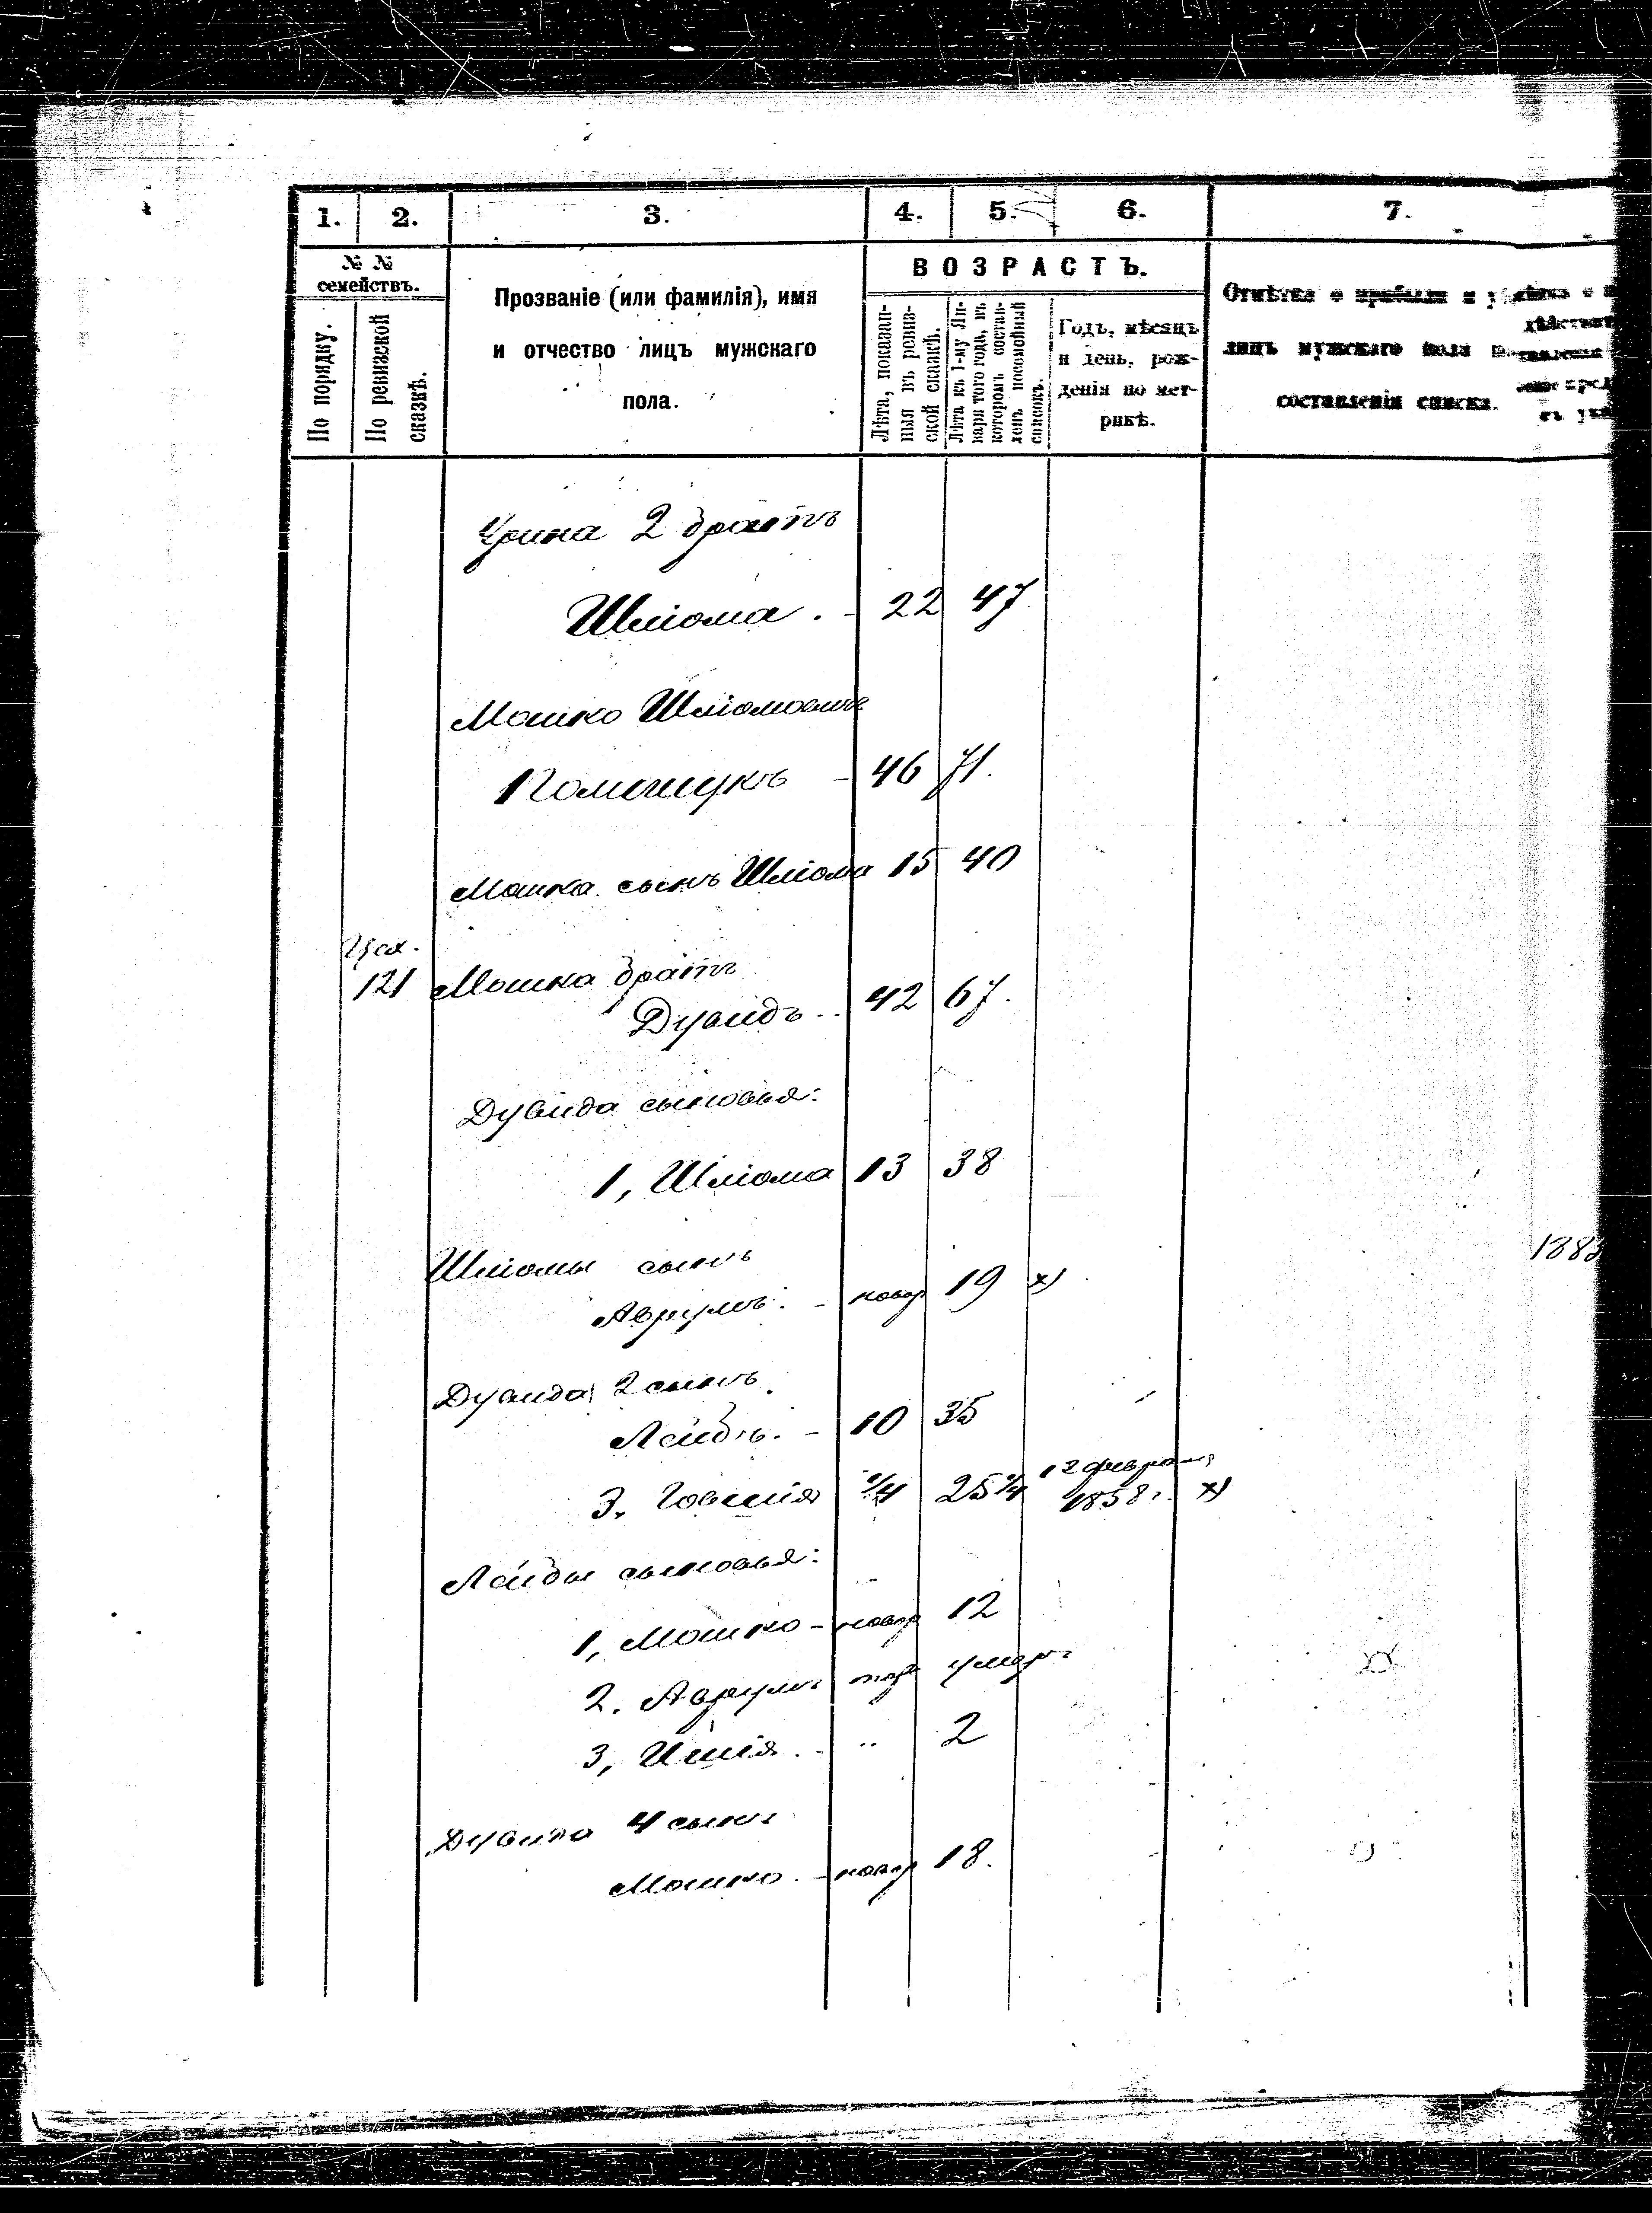 1. 2. 3. 4. 5. 6. 7.
№ № семействъ.
По порядку.
По ревизской сказкѣ.
Прозваніе (или фамилія), имя
и отчество лицъ мужскаго
пола.
ВОЗРАСТЪ.
Лѣта, показан-
ныя въ ревиз-
ской сказкѣ.
Лѣта къ 1-му Ян-
варя того года, въ
которомъ состав-
ленъ посемейный
списокъ.
Годъ, мѣсяцъ
и день, рож-
денія по мет-
рикѣ.
Отмѣтка о прибыли и
лицъ мужскаго пола
составленія списка.
2 братъ
Шліома . - 22 47.
Мошко Шліомовичъ
- 46 71.
Мошка сынъ Шліома 15 40
121 Мошка братъ
Дувидъ .. 42 67.
Дувида сыновья:
1, Шліома 13 38
Шліомы сынъ
Аврумъ. - новор 19 х)
Дувида 2 сынъ
Лейбъ. - 10 35
3, Говшія 3/4 25 3/4 12 февраля
1858 г. х)
Лейбы сыновья:
1, Мошко - новор 12
2. Аврумъ умеръ
3, Ишія . - " 2
Дувида 4 сынъ
Мошко. - новор 18.